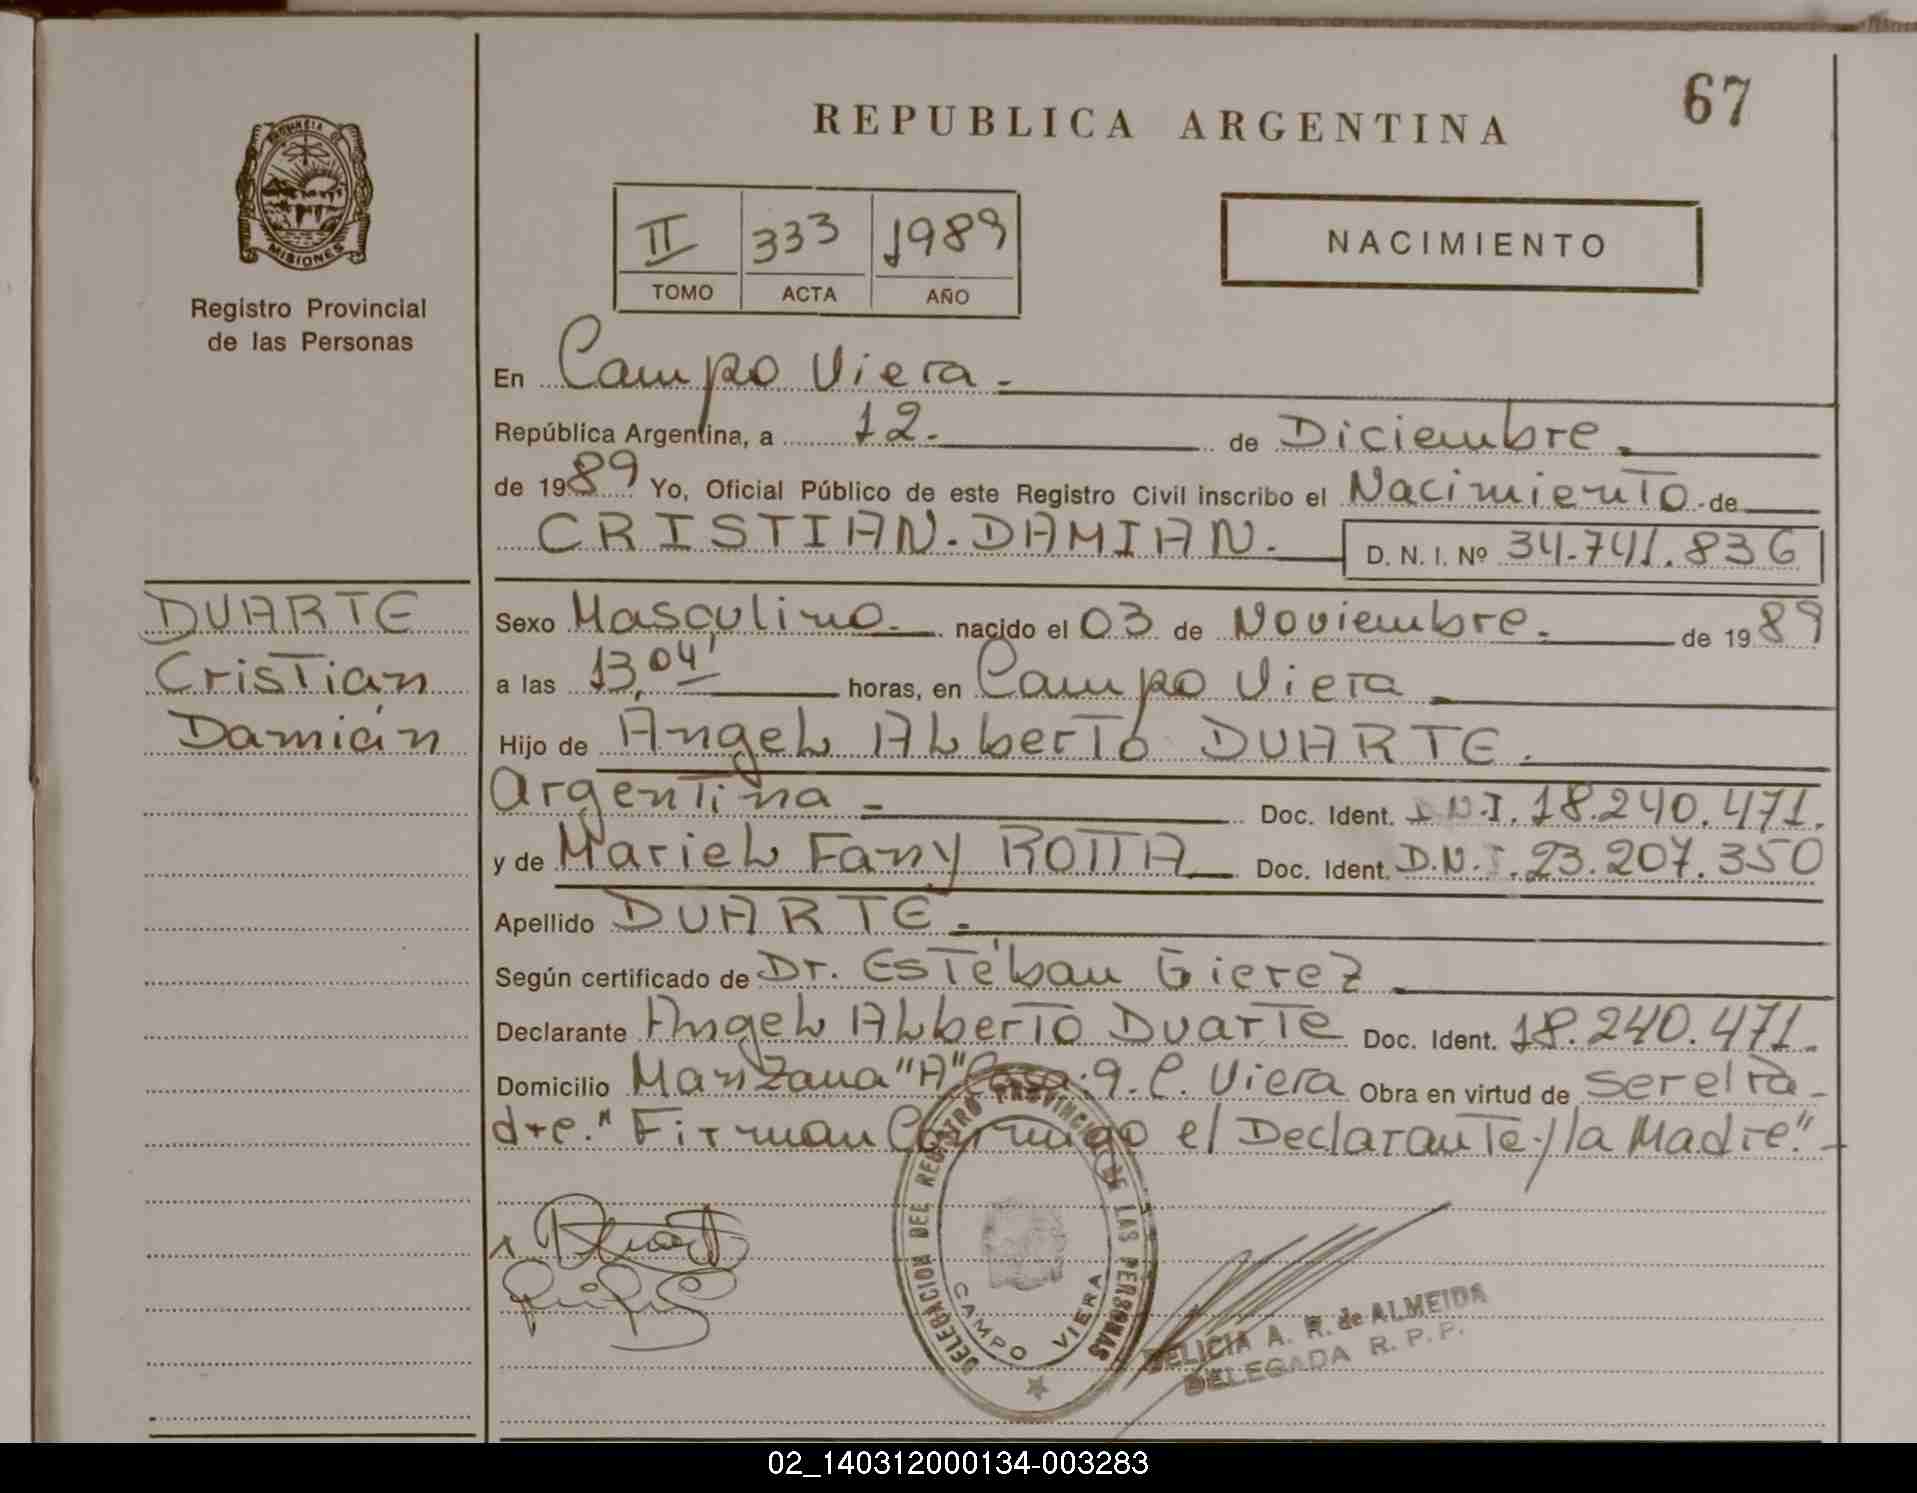 67
REPUBLICA ARGENTINA
PROVINCIA DE
MISIONES
Registro Provincial
de las Personas
II 333 1989
TOMO ACTA AÑO
NACIMIENTO
En Campo Viera.-
República Argentina, a 12.- de Diciembre.
de 1989 Yo, Oficial Público de este Registro Civil inscribo el Nacimiento de
CRISTIAN. DAMIAN.- D. N. I. Nº 34.741.836
DUARTE
Cristian
Damián
Sexo Masculino. nacido el 03 de Noviembre. de 1989
a las 13,04' horas, en Campo Viera
Hijo de Angel Alberto DUARTE.
Argentina - Doc. Ident. D.N.I. 18.240.471.
y de Mariel Fany ROTTA Doc. Ident. D.N.I. 23.207.350
Apellido DUARTE.
Según certificado de Dr. Estéban Gierez
Declarante Angel Alberto Duarte Doc. Ident. 18.240.471.
Domicilio Manzana "A" Casa. 9. C. Viera Obra en virtud de ser el Pa-
dre." Firman Conmigo el Declarante y la Madre."-
DELEGACION DEL REGISTRO PROVINCIAL DE LAS PERSONAS
CAMPO VIERA
DELICIA A. R. de ALMEIDA
DELEGADA R. P. P.
02_140312000134-003283